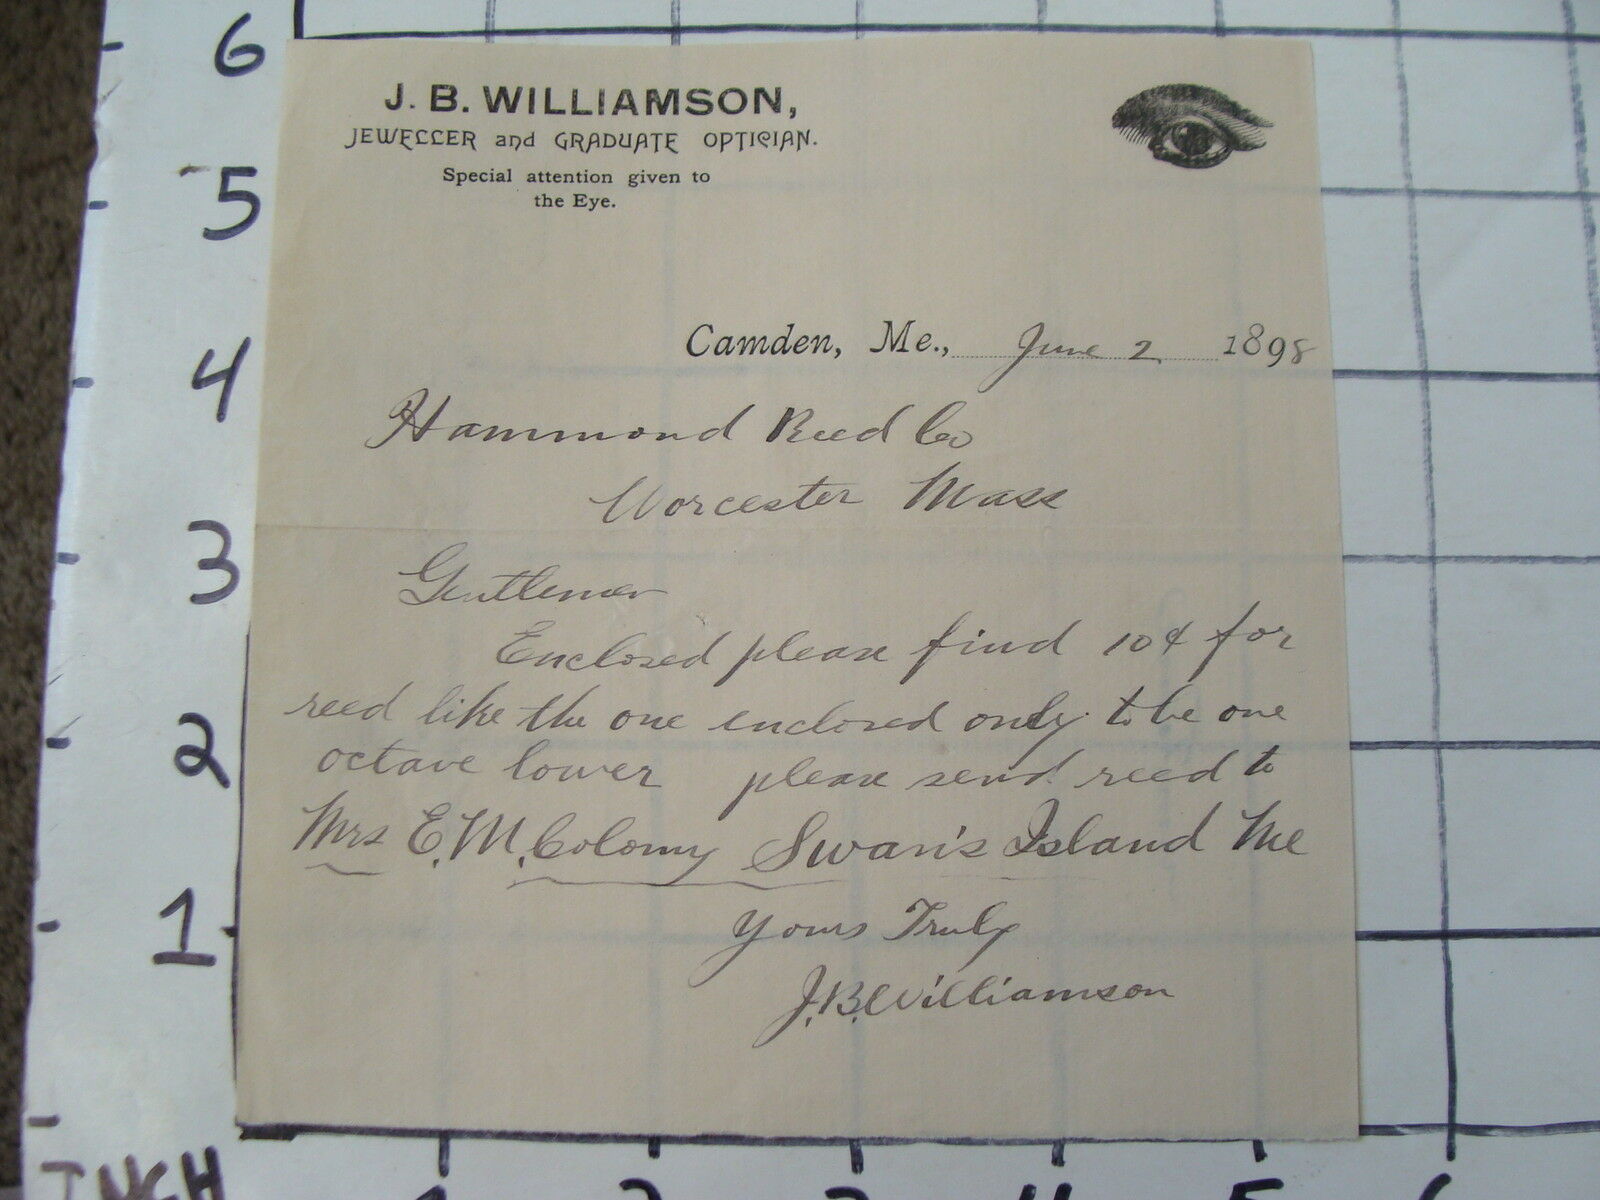 6
5
4
3
2
1
INCH
1 2 3 4 5 6
J. B. WILLIAMSON,
JEWELLER and GRADUATE OPTICIAN.
Special attention given to
the Eye.
Camden, Me., June 2 1898
Hammond Reed Co
Worcester Mass
Gentlemen
Enclosed please find 10¢ for
reed like the one enclosed only to be one
octave lower please send reed to
Mrs E. M. Colomy Swan's Island Me
Yours Truly
J. B. Williamson